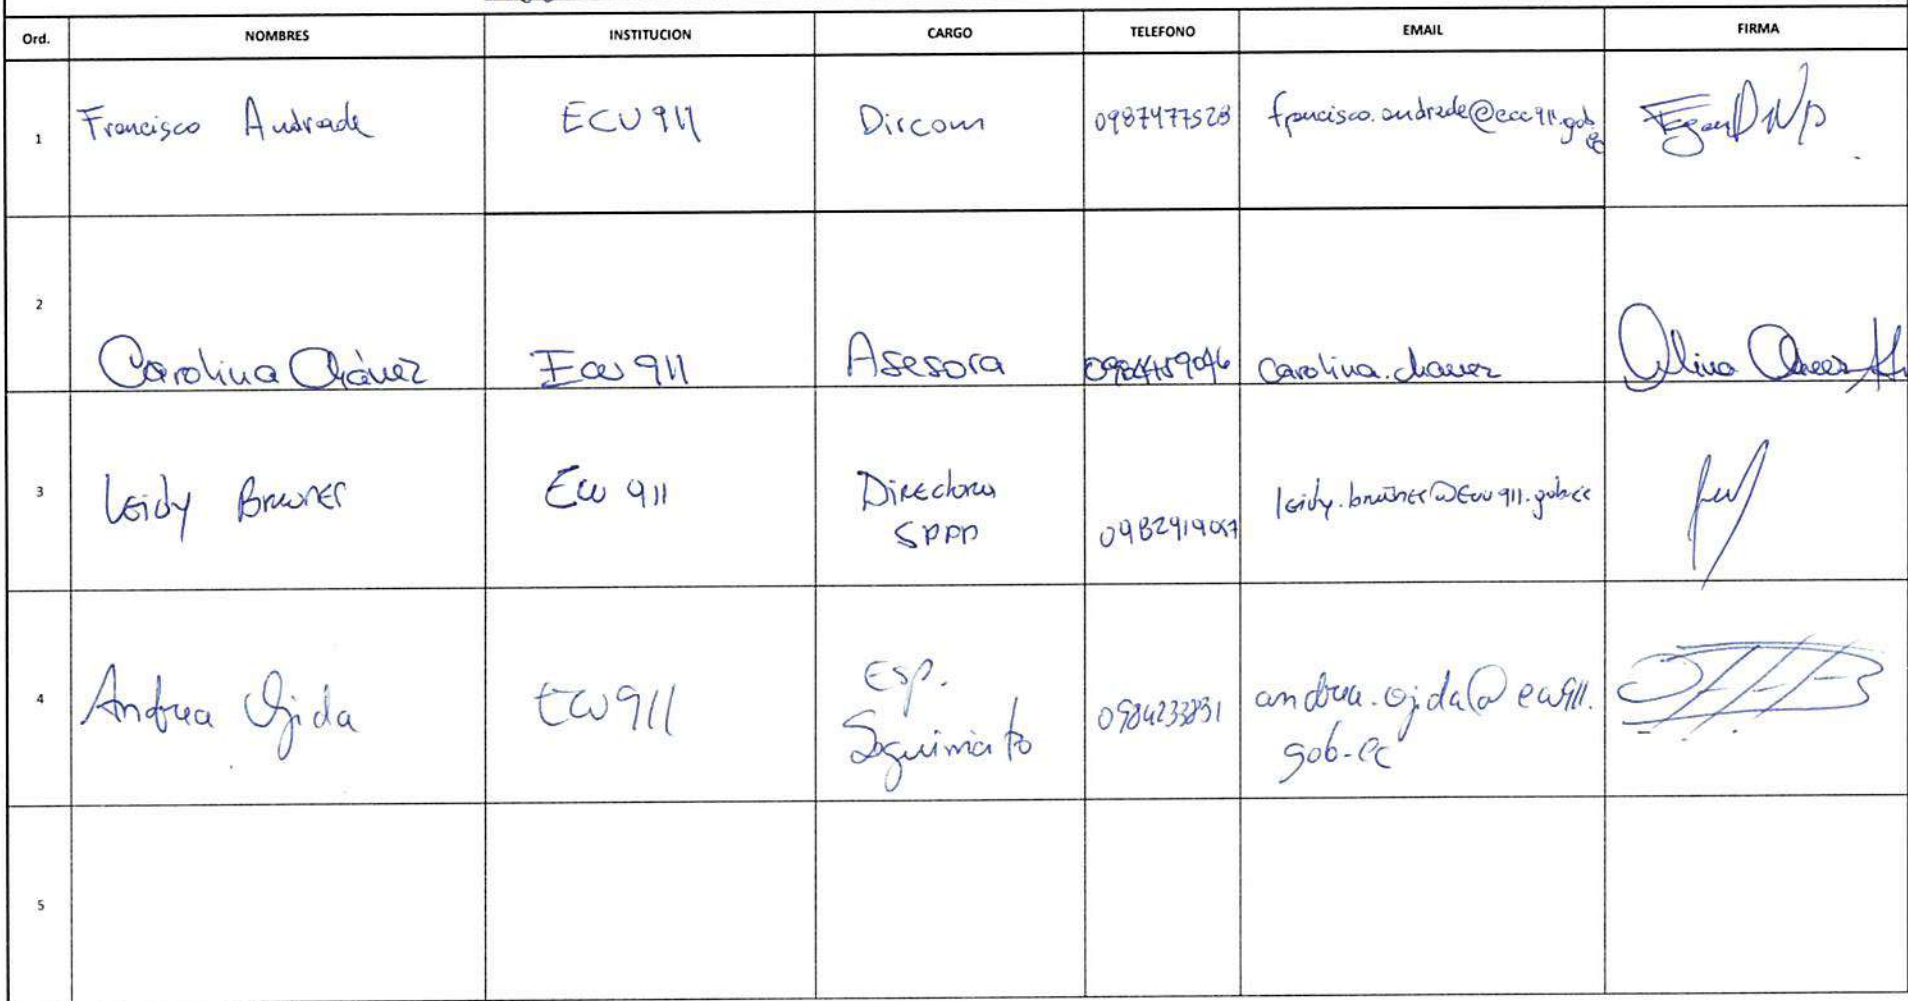 Ord. NOMBRES INSTITUCION CARGO TELEFONO EMAIL FIRMA
1 Francisco Andrade ECU 911 Dircom 0987477528 francisco.andrade@ecu911.gob.ec
2 Carolina Chávez Ecu 911 Asesora carolina.chavez
3 Leidy Ecu 911 Directora
SPPP
4 Andrea Ojeda ECU911 Esp.
Seguimiento 0984233831 andrea.ojeda@ecu911.
gob.ec
5